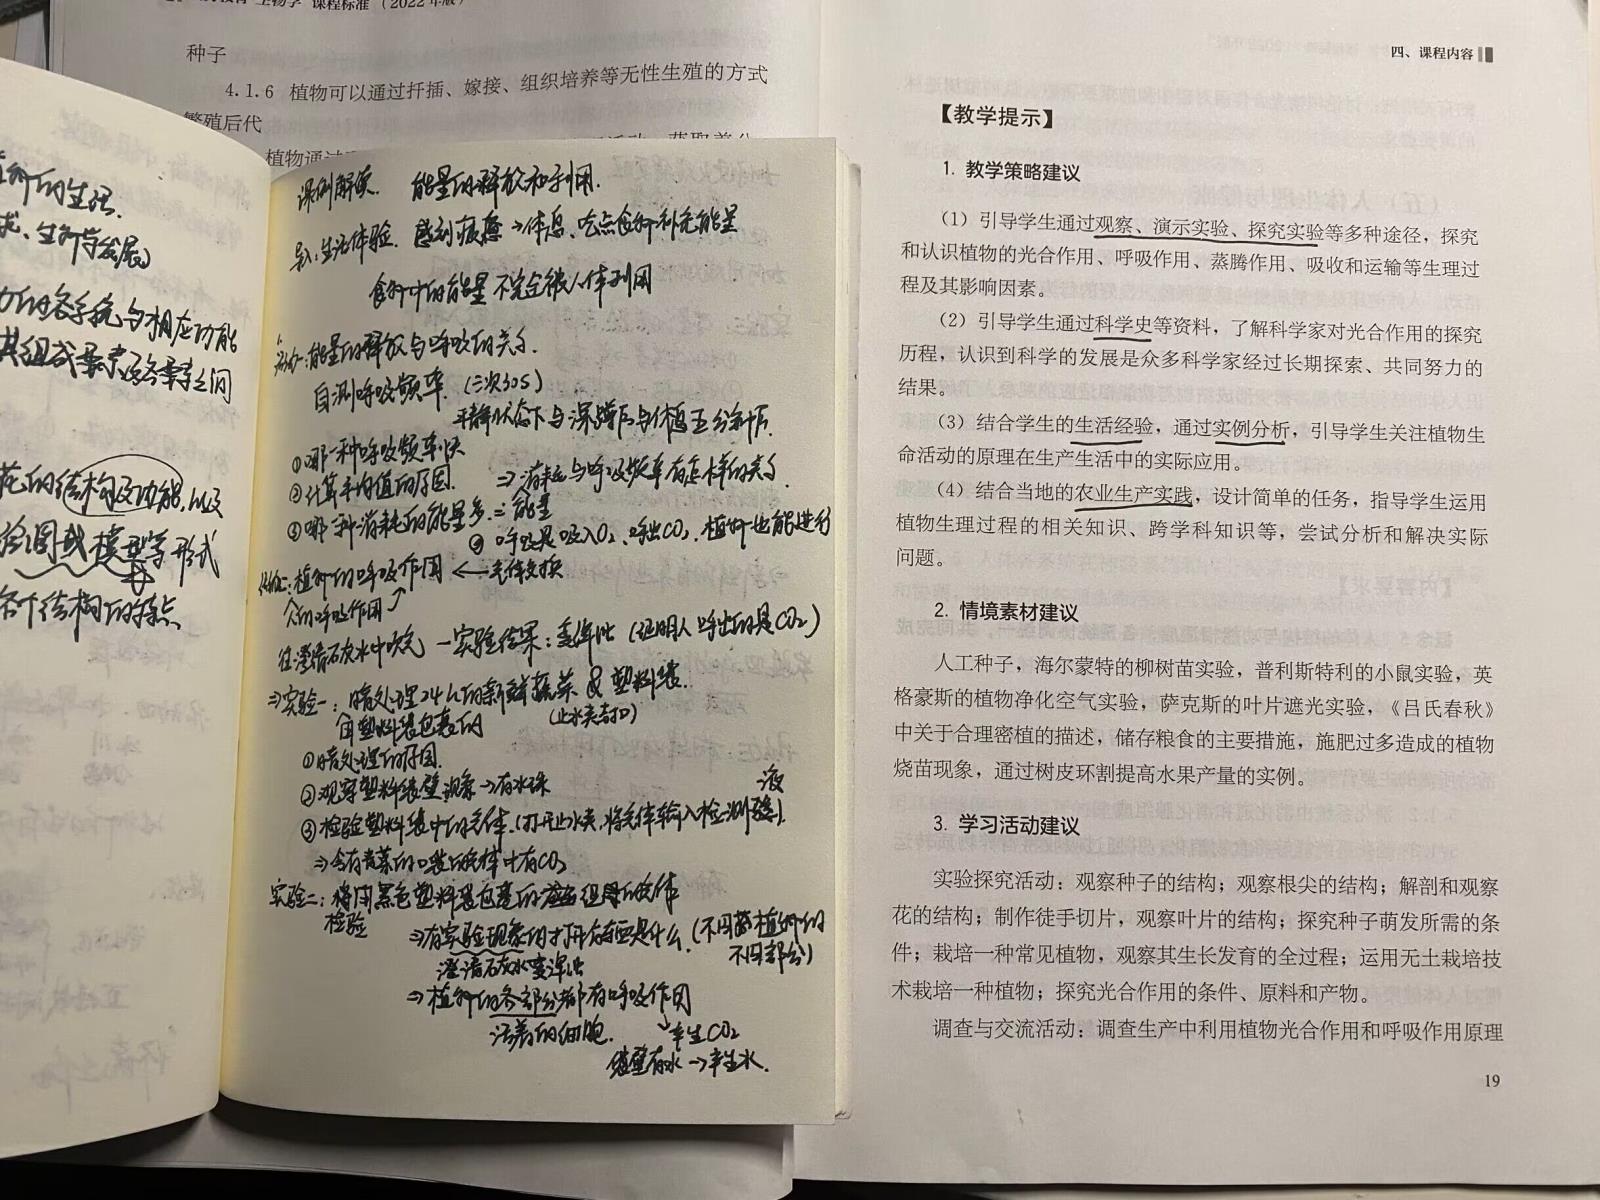 课程标准（2022年版）
种子
4.1.6 植物可以通过扦插、嫁接、组织培养等无性生殖的方式
繁殖后代
植物通过
的生活.
求、生物与发展)
力的各系统与相应功能
其组成要素及各要素之间
花的结构及功能,以及
绘图或模型等形式
各个结构的特点
课例解读. 能量的释放和利用.
导入:生活体验. 感到疲惫→休息、吃点食物补充能量
食物中的能量不完全被人体利用
活动一:能量的释放与呼吸的关系.
自测呼吸频率. (三次30s)
平静状态下与深蹲后与休息五分钟后.
①哪一种呼吸频率快
②计算平均值的原因. ⇒消耗与呼吸频率有怎样的关系.
能量
③哪一种消耗的能量多.
④呼吸是吸入O₂、呼出CO₂,植物也能进行
活动二:植物的呼吸作用 ← 气体交换
人的呼吸作用
往澄清石灰水中吹气 —实验结果:变浑浊 (证明人呼出的是CO₂)
⇒实验一:暗处理24h的新鲜蔬菜 & 塑料袋.
用塑料袋包裹的 (止水夹密扣)
①暗处理的原因.
②观察塑料袋壁现象→有水珠
③检验塑料袋中的气体.(打开止水夹,将气体输入检测液)
⇒含有青菜的口袋气体中有CO₂
实验二:将用黑色塑料袋包裹的 组的气体
检验
⇒有实验现象的打开后是什么. (不同植物的
不同部分)
澄清石灰水变浑浊
⇒植物的各部分都有呼吸作用
活着的细胞. 产生CO₂
袋壁有水→产生水.
四、课程内容
【教学提示】
1. 教学策略建议
（1）引导学生通过观察、演示实验、探究实验等多种途径，探究
和认识植物的光合作用、呼吸作用、蒸腾作用、吸收和运输等生理过
程及其影响因素。
（2）引导学生通过科学史等资料，了解科学家对光合作用的探究
历程，认识到科学的发展是众多科学家经过长期探索、共同努力的
结果。
（3）结合学生的生活经验，通过实例分析，引导学生关注植物生
命活动的原理在生产生活中的实际应用。
（4）结合当地的农业生产实践，设计简单的任务，指导学生运用
植物生理过程的相关知识、跨学科知识等，尝试分析和解决实际
问题。
2. 情境素材建议
人工种子，海尔蒙特的柳树苗实验，普利斯特利的小鼠实验，英
格豪斯的植物净化空气实验，萨克斯的叶片遮光实验，《吕氏春秋》
中关于合理密植的描述，储存粮食的主要措施，施肥过多造成的植物
烧苗现象，通过树皮环割提高水果产量的实例。
3. 学习活动建议
实验探究活动：观察种子的结构；观察根尖的结构；解剖和观察
花的结构；制作徒手切片，观察叶片的结构；探究种子萌发所需的条
件；栽培一种常见植物，观察其生长发育的全过程；运用无土栽培技
术栽培一种植物；探究光合作用的条件、原料和产物。
调查与交流活动：调查生产中利用植物光合作用和呼吸作用原理
19